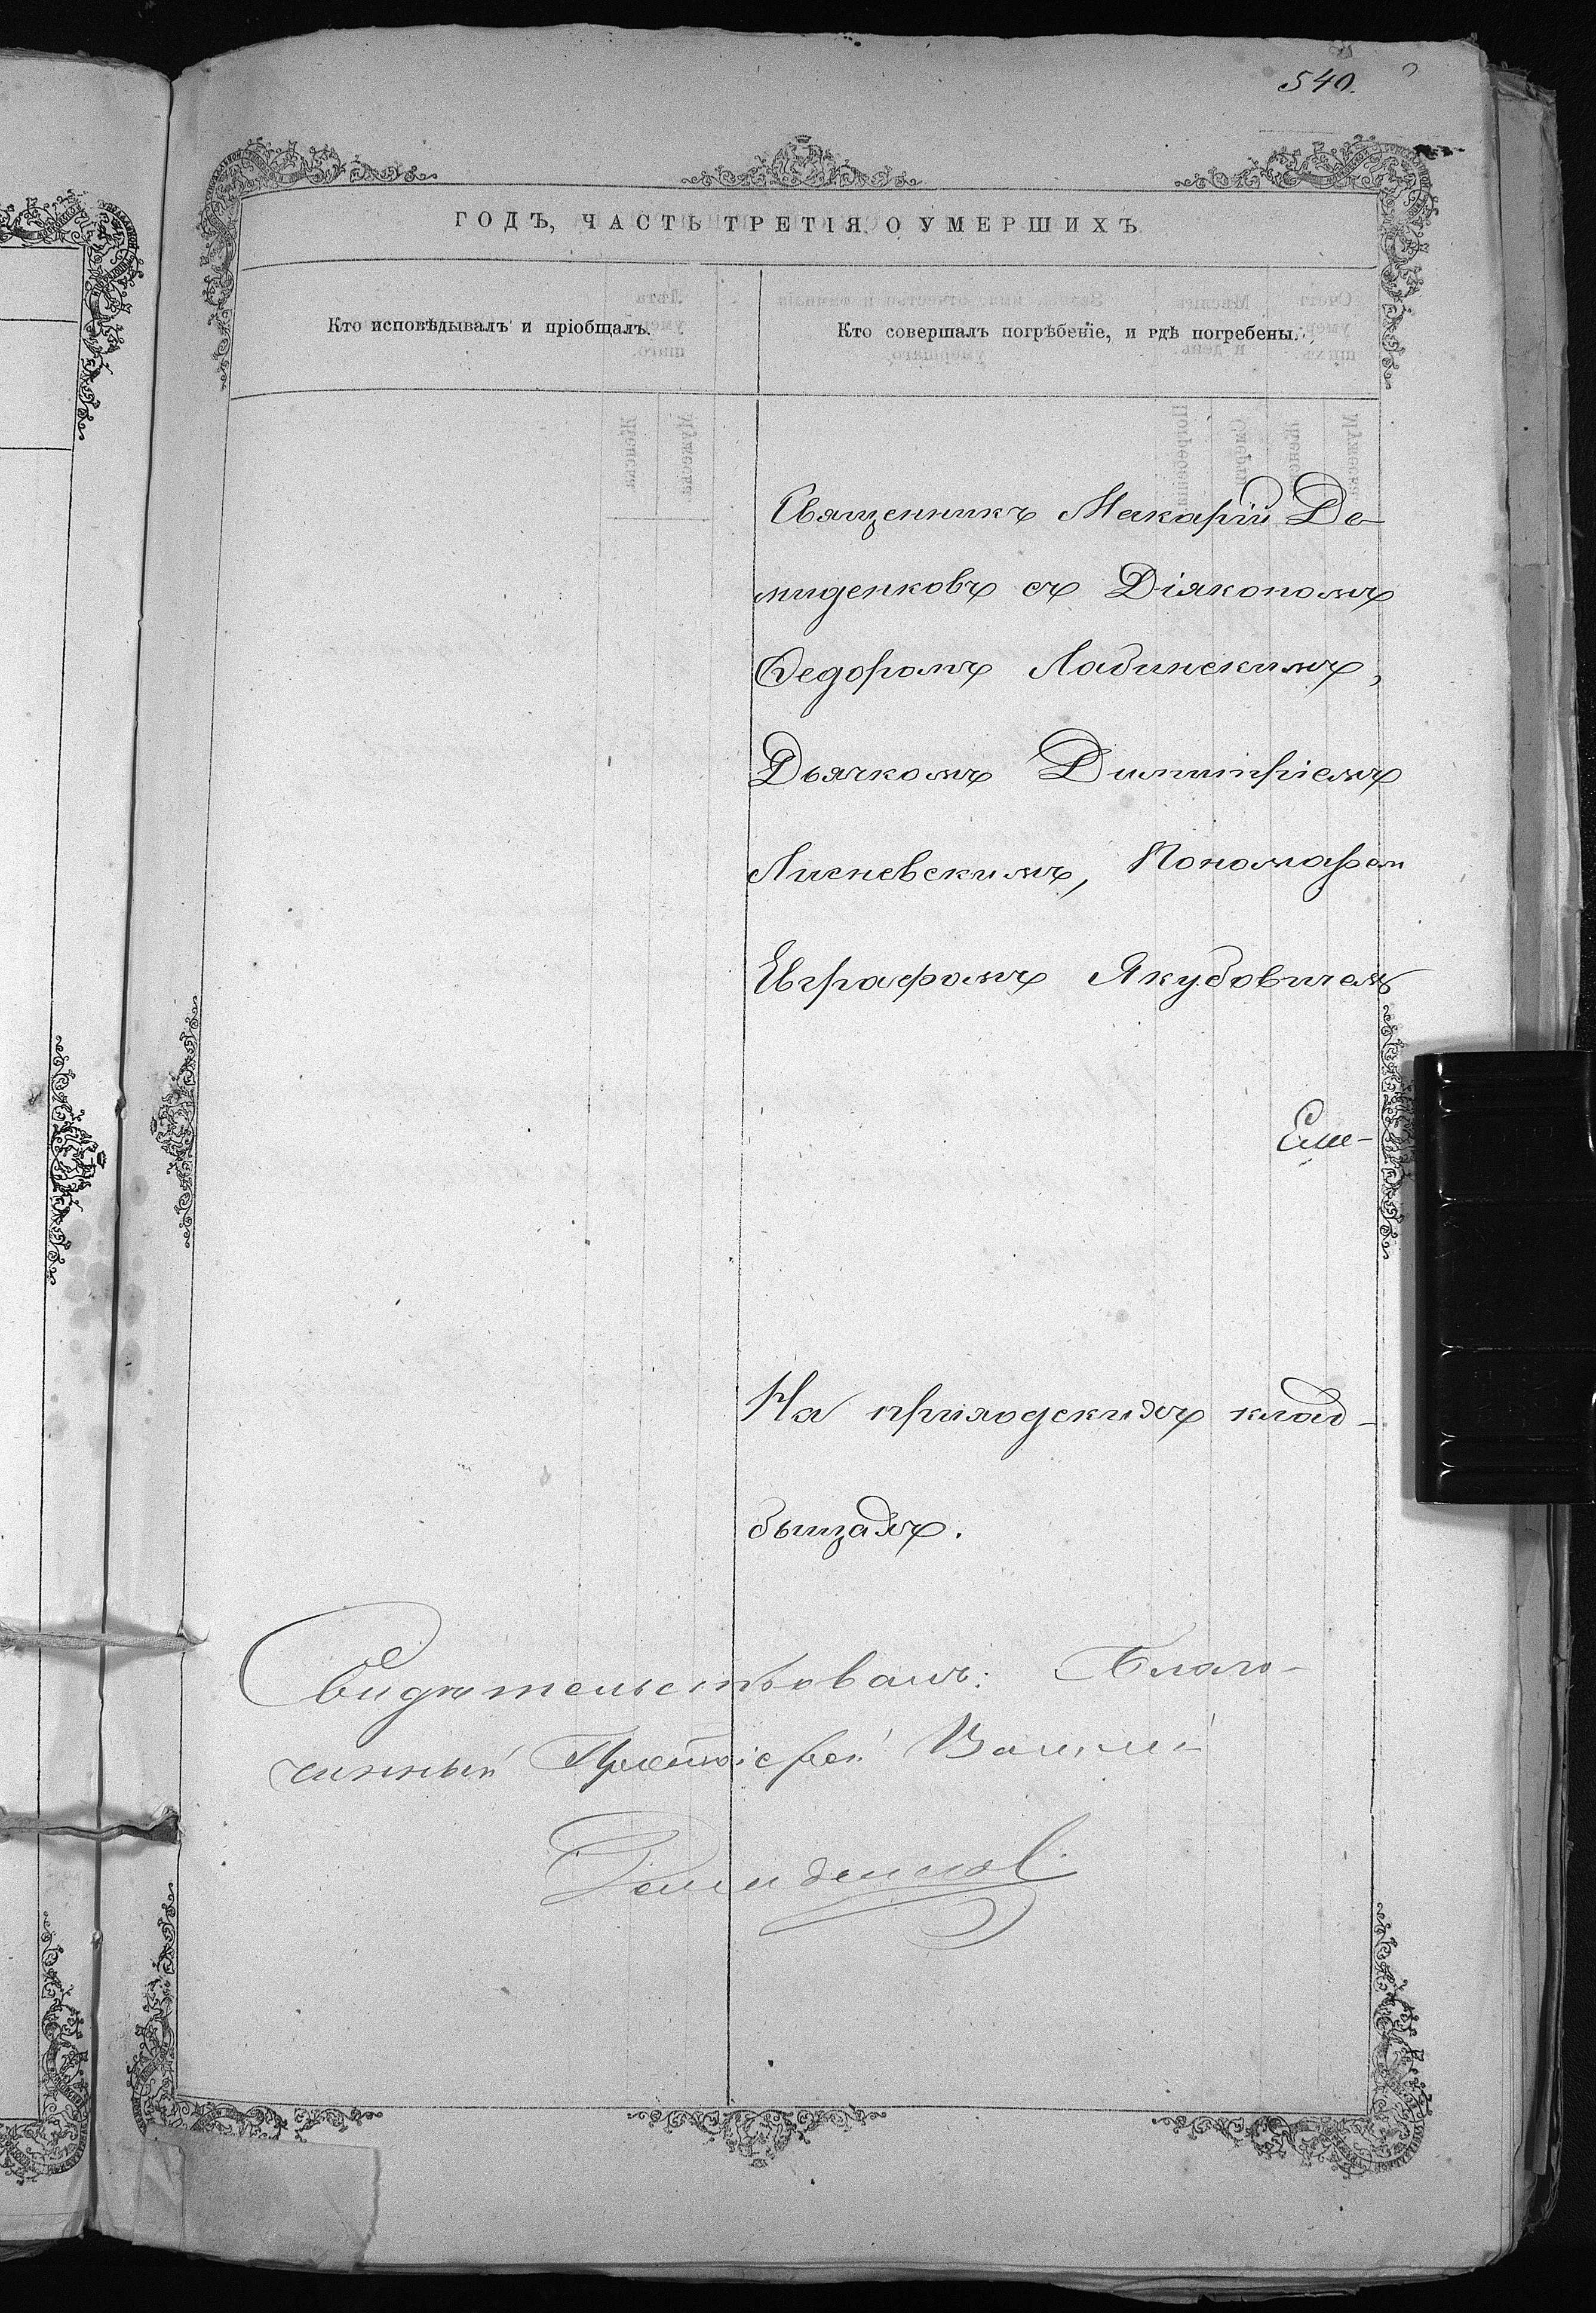 540.
ГОДЪ, ЧАСТЬ ТРЕТІЯ О УМЕРШИХЪ
Кто исповѣдывалъ и пріобщалъ.
Кто совершалъ погрѣбеніе, и гдѣ погребены.
Священникъ Макарій Де-
миденковъ съ Діякономъ
Ѳедоромъ Лабинскимъ,
Дьячкомъ Димитріемъ
Лисневскимъ, Пономарем
Евграфомъ Якубовичемъ
На приходскихъ клад-
бищахъ.
Свидѣтельствовалъ: Благо-
чинный Протоіерей Василій
Демиденков